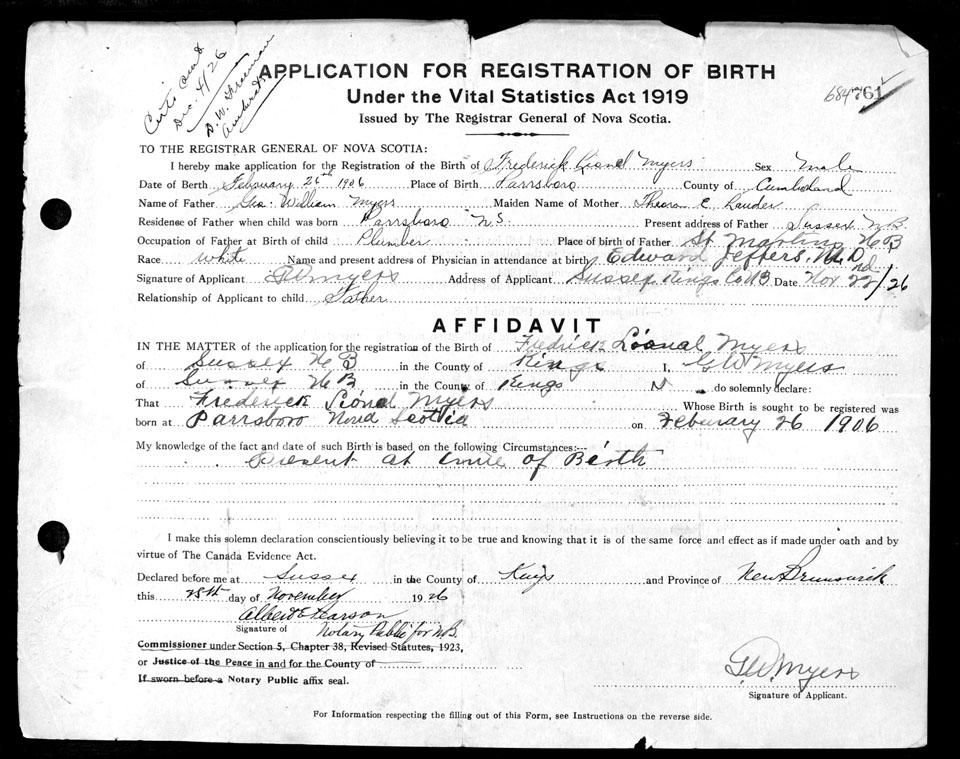 Certs asked
Dec. 4/26
D. W. Freeman
Amherst
684761
APPLICATION FOR REGISTRATION OF BIRTH
Under the Vital Statistics Act 1919
Issued by The Registrar General of Nova Scotia.
TO THE REGISTRAR GENERAL OF NOVA SCOTIA:
I hereby make application for the Registration of the Birth of Frederick Lional Myers Sex Male
Date of Berth February 26th 1906 Place of Birth Parrsboro County of Cumberland
Name of Father Geo. William Myers Maiden Name of Mother E. Lauder
Residence of Father when child was born Parrsboro N S. Present address of Father Sussex N.B.
Occupation of Father at Birth of child Plumber Place of birth of Father St Martins N B
Race White Name and present address of Physician in attendance at birth Edward Jeffers, M.D
Signature of Applicant GW Myers Address of Applicant Sussex Kings Co NB Date Nov 22nd/26
Relationship of Applicant to child Father
AFFIDAVIT
IN THE MATTER of the application for the registration of the Birth of Fredrick Lional Myers
of Sussex N B in the County of Kings I, GW Myers
of Sussex N B. in the County of Kings N do solemnly declare:
That Frederick Lional Myers Whose Birth is sought to be registered was
born at Parrsboro Nova Scotia on Feburary 26 1906
My knowledge of the fact and date of such Birth is based on the following Circumstances:—
Present at time of Birth
I make this solemn declaration conscientiously believing it to be true and knowing that it is of the same force and effect as if made under oath and by
virtue of The Canada Evidence Act.
Declared before me at Sussex in the County of Kings and Province of New Brunswick
this 25th day of November 1926
Albert E Pearson
Signature of Notary Public for N.B.
Commissioner under Section 5, Chapter 38, Revised Statutes, 1923,
or Justice of the Peace in and for the County of
If sworn before a Notary Public affix seal.
G.W. Myers
Signature of Applicant.
For Information respecting the filling out of this Form, see Instructions on the reverse side.